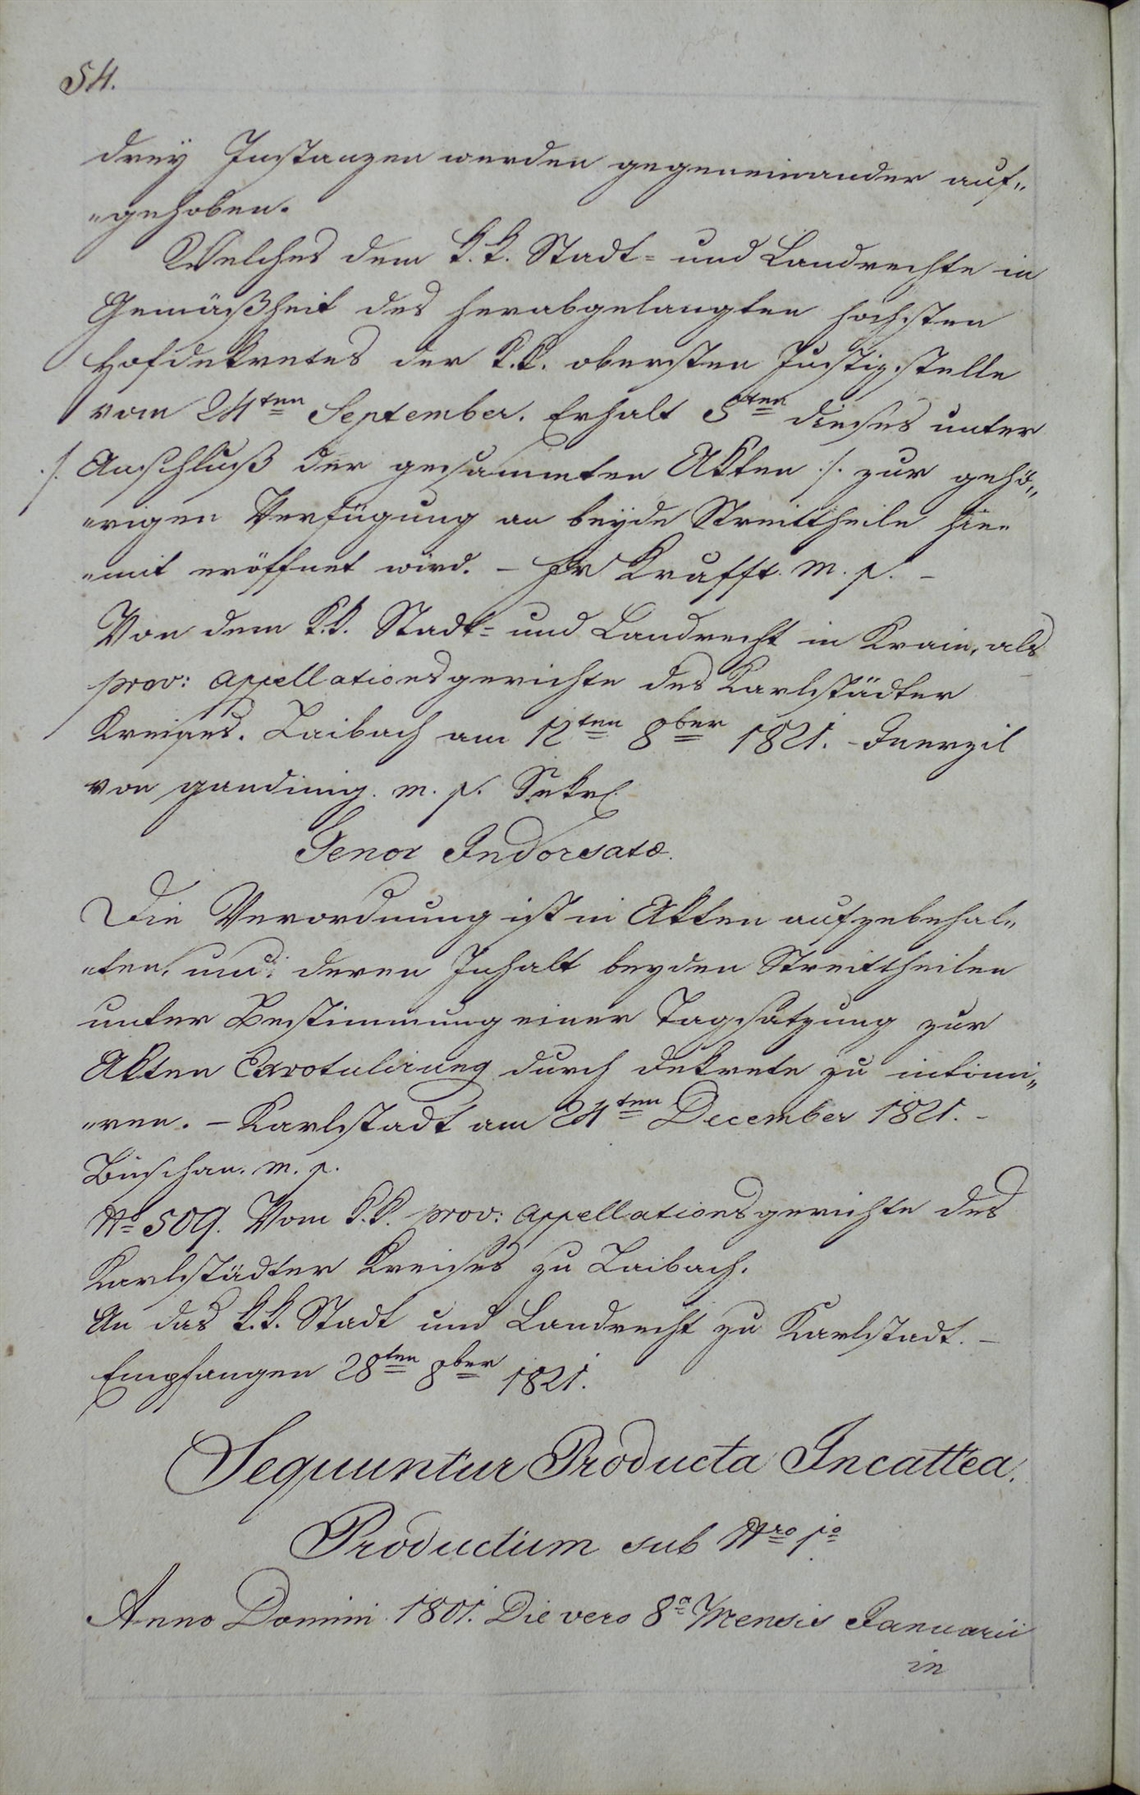 54.
drey Instanzen werden gegeneinander auf„
„gehoben.
Welches dem k.k. Stadt= und Landrechte in
Gemäßheit des herabgelangten höchsten
Hofdekretes der k.k. obersten Justizstelle
vom 24ten September. Erhalt 5ten dieses unter
./. Anschluß der gesammten Akten ./. zur gehö„
„rigen Verfügung an beyde Streittheile hie„
„mit eröffnet wird. – Krufft. m. p. –
Von dem k.k. Stadt= und Landrecht in Krain, als
prov: Appellationsgerichte des Karlstädter
Kreises. Laibach am 12ten 8ber 1821. –
von m. p. Sekr.
Tenor Indorsatæ.
Die Verordnung ist in Akten aufzubehal„
„ten, und deren Inhalt beyden Streittheilen
unter Bestimmung einer Tagsatzung zur
Akten Exrotulirung durch Dekrete zu intimi„
„ren. – Karlstadt am 24ten December 1821. –
m. p.
No 509. Vom k.k. prov: Appellationsgerichte des
Karlstädter Kreises zu Laibach.
An das k.k. Stadt und Landrecht zu Karlstadt. –
Empfangen 28ten 8ber 1821.
Sequuntur Producta Incattea.
Productum sub Nro 1o
Anno Domini 1801. Die vero 8a Mensis Januarii
in